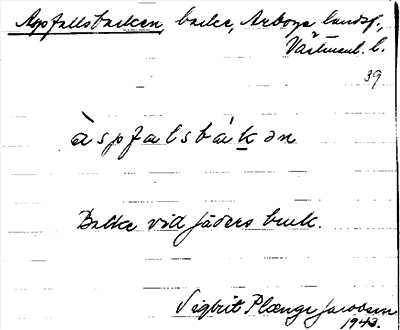 Aspfallsbacken, backe, Arboga landsf.,
Västmanl. l.
39
àspfalsbákən
Backe vid Jäders bruk.
Sigbrit Plænge Jacobson
1943.